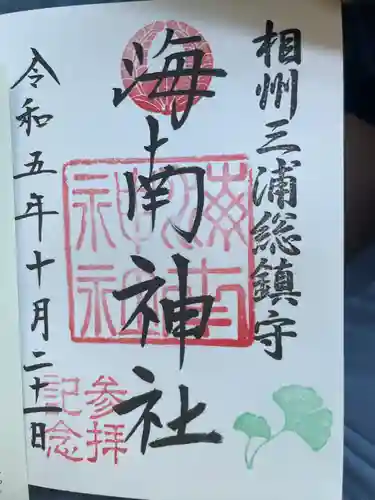 相州三浦総鎮守
海南神社
令和五年十月二十一日
参拝
記念